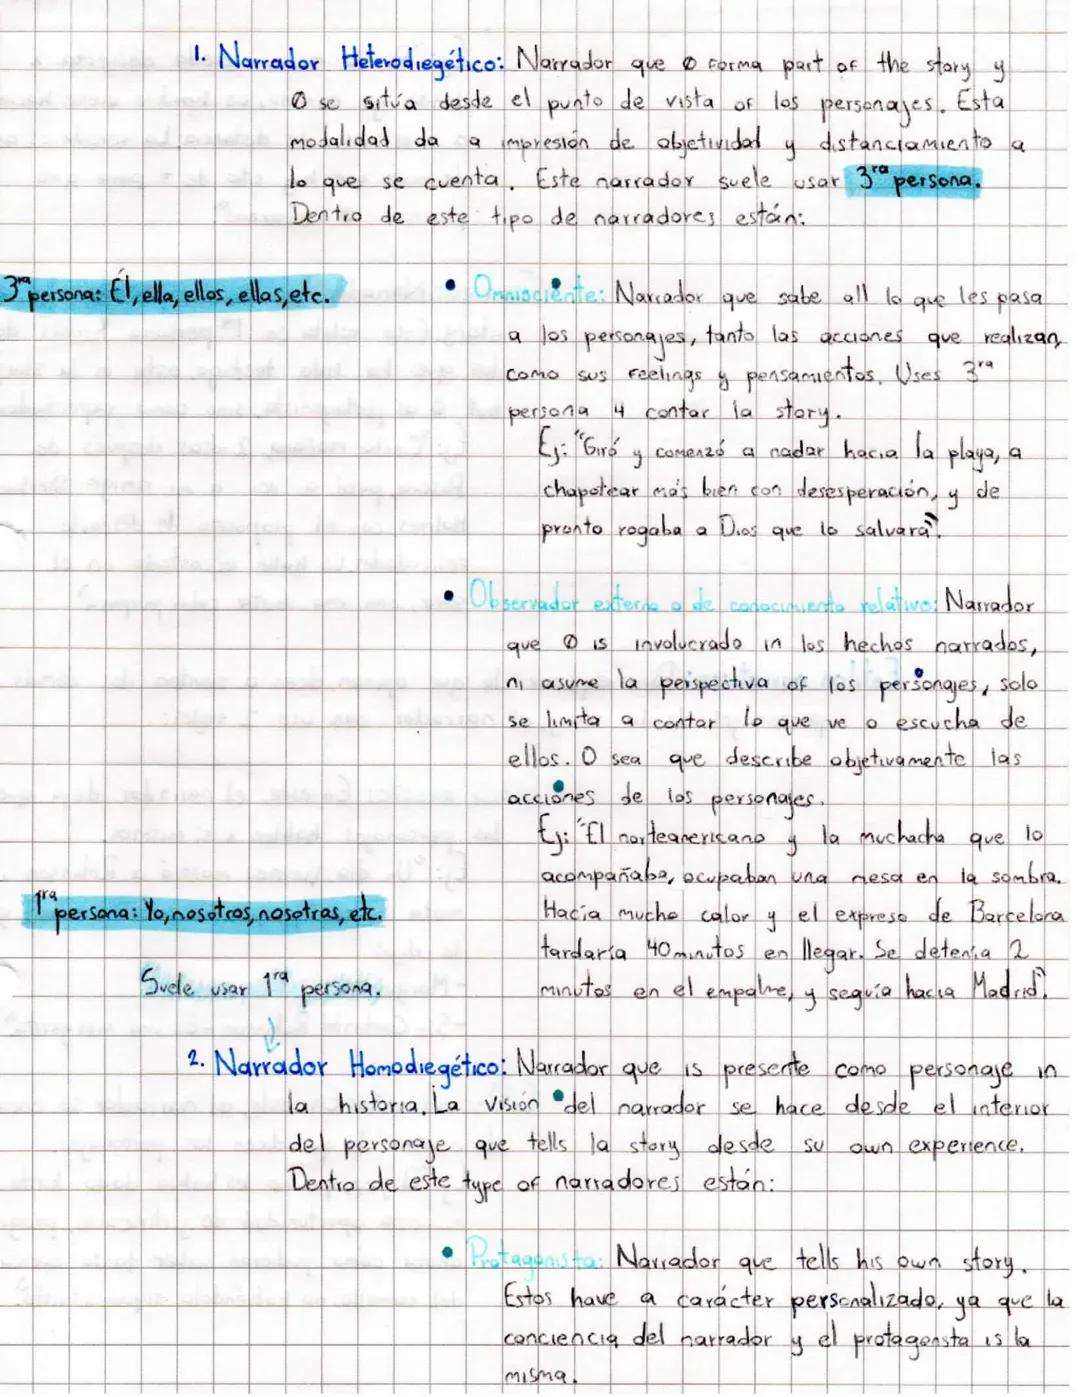 1. Narrador Heterodiegético: Narrador que Ø forma part of the story y
Ø se sitúa desde el punto de vista of los personajes. Esta
modalidad da a impresión de objetividad y distanciamiento a
lo que se cuenta. Este narrador suele usar 3ra persona.
Dentro de este tipo de narradores están:
3ra persona: Él, ella, ellos, ellas, etc.
• Omnisciente: Narrador que sabe all lo que les pasa
a los personajes, tanto las acciones que realizan,
como sus feelings y pensamientos. Uses 3ra
persona 4 contar la story.
Ej: "Giró y comenzó a nadar hacia la playa, a
chapotear más bien con desesperación, y de
pronto rogaba a Dios que lo salvara".
• Observador externo o de conocimiento relativo: Narrador
que Ø is involucrado in los hechos narrados,
ni asume la perspectiva of los personajes, solo
se limita a contar lo que ve o escucha de
ellos. O sea que describe objetivamente las
acciones de los personajes.
Ej: "El norteamericano y la muchacha que lo
acompañaba, ocupaban una mesa en la sombra.
Hacía mucho calor y el expreso de Barcelona
tardaría 40 minutos en llegar. Se detenía 2
minutos en el empalme, y seguía hacia Madrid".
1ra persona: Yo, nosotros, nosotras, etc.
Suele usar 1ra persona.
2. Narrador Homodiegético: Narrador que is presente como personaje in
la historia. La visión del narrador se hace desde el interior
del personaje que tells la story desde su own experience.
Dentro de este type of narradores están:
• Protagonista: Narrador que tells his own story.
Estos have a carácter personalizado, ya que la
conciencia del narrador y el protagonsta is la
misma.